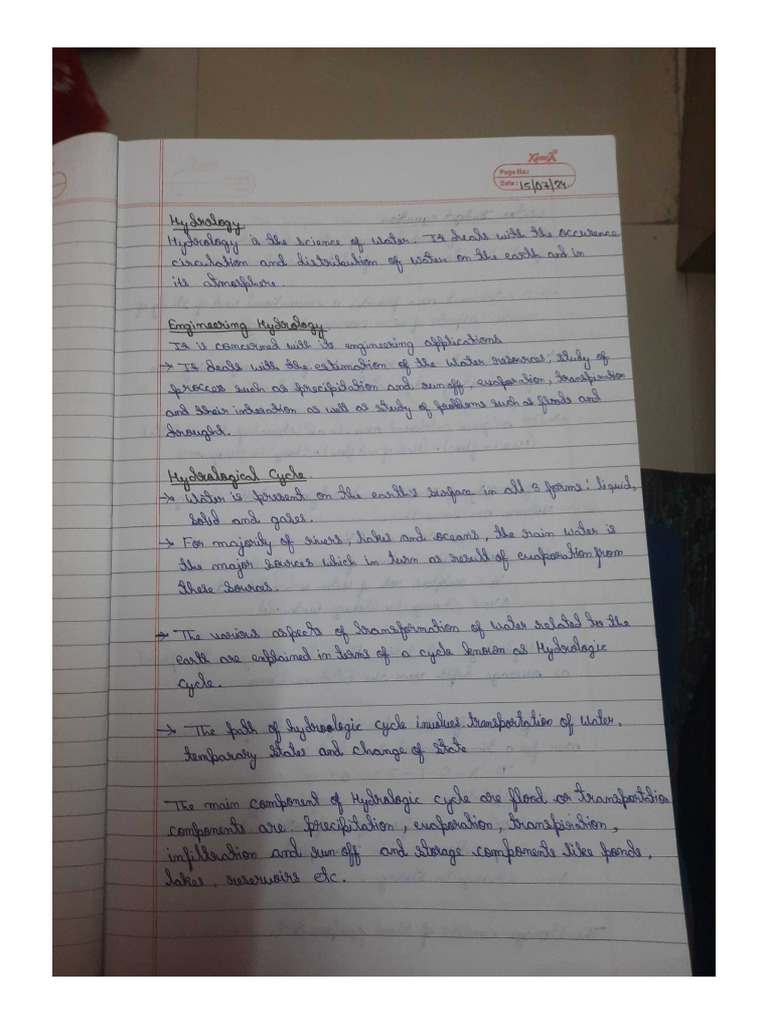 Page No.:
Date: 15/07/24
Hydrology
Hydrology is the science of water. It deals with the occurence
circulation and distribution of water on the earth and in
its atmosphore.
Engineering Hydrology
It is concerned with its engineering applications
→ It deals with the estimation of the water resources; study of
process such as precipitation and run off, evaporation, transpiration
and their interation as well as study of problems such as floods and
drought.
Hydrological Cycle
→ Water is present on the earth's surface in all 3 forms: liquid,
solid and gases.
→ For majority of rivers, lakes and oceans, the rain water is
the major sources which in turn as result of evaporation from
these sources.
→ The various aspects of transformation of water related to the
earth are explained in terms of a cycle known as Hydrologic
cycle.
→ The path of hydroologic cycle involves transportation of water,
temparary states and change of state
The main component of Hydrologic cycle are flood or transportation
components are precipitation, evaporation, transpiration,
infiltration and run off and storage components like ponds,
lakes, reservoirs etc.